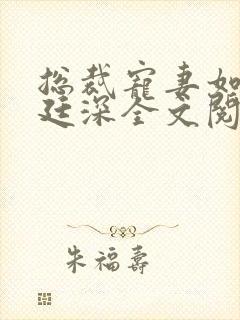 总裁宠妻如
廷深全文阅
朱福寿